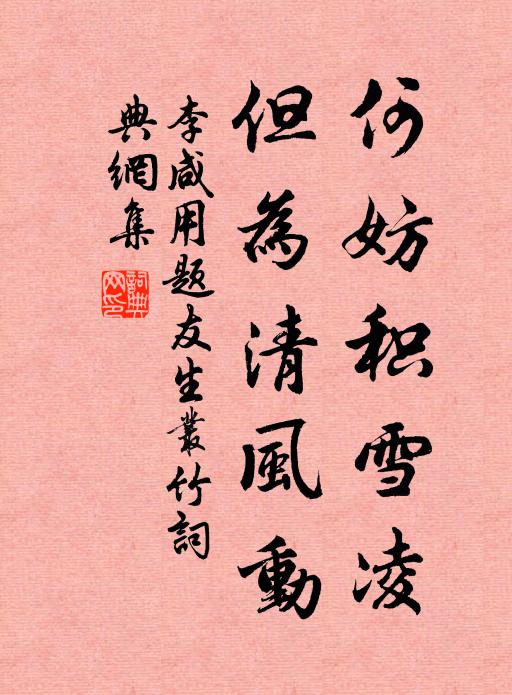 何妨积雪凌
但為清風動
李咸用题友生叢竹詞
典網集
詞典
网印